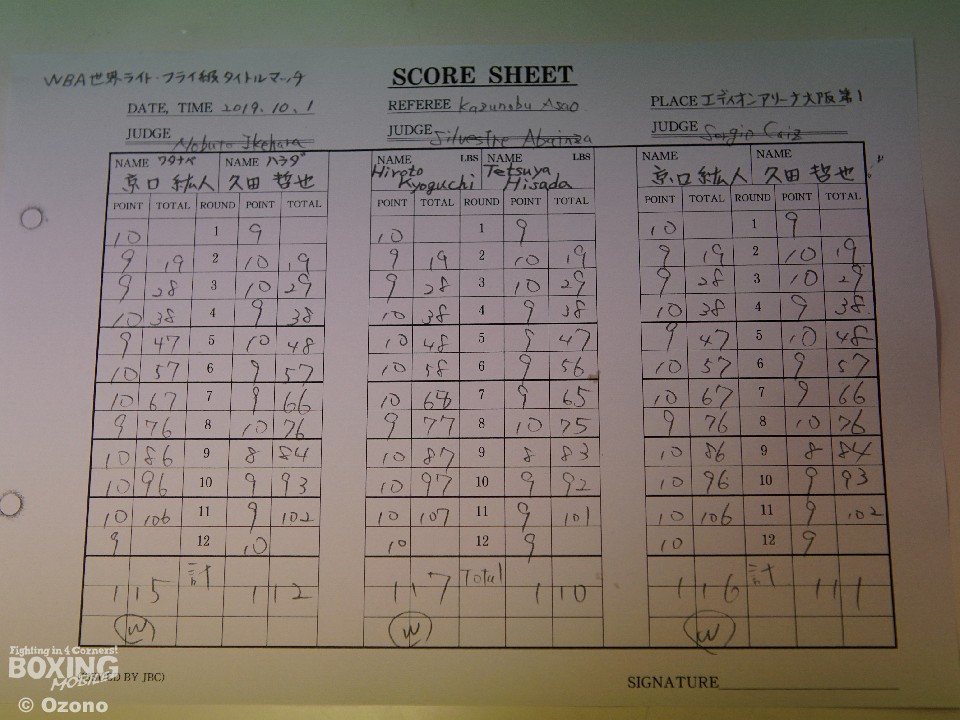 WBA世界ライト・フライ級タイトルマッチ
SCORE SHEET
DATE, TIME 2019.10.1
REFEREE Kazunobu Asao
PLACE エディオンアリーナ大阪第1
JUDGE Nobuto Ikehara
JUDGE Silvestre Abainza
JUDGE Sergio Caiz
NAME ワタナベ NAME ハラダ NAME LBS NAME LBS NAME NAME
京口 紘人 久田 哲也 Hiroto Kyoguchi Tetsuya Hisada 京口 紘人 久田 哲也
POINT TOTAL ROUND POINT TOTAL POINT TOTAL ROUND POINT TOTAL POINT TOTAL ROUND POINT TOTAL
10 1 9 10 1 9 10 1 9
9 19 2 10 19 9 19 2 10 19 9 19 2 10 19
9 28 3 10 29 9 28 3 10 29 9 28 3 10 29
10 38 4 9 38 10 38 4 9 38 10 38 4 9 38
9 47 5 10 48 10 48 5 9 47 9 47 5 10 48
10 57 6 9 57 10 58 6 9 56 10 57 6 9 57
10 67 7 9 66 10 68 7 9 65 10 67 7 9 66
9 76 8 10 76 9 77 8 10 75 9 76 8 10 76
10 86 9 8 84 10 87 9 8 83 10 86 9 8 84
10 96 10 9 93 10 97 10 9 92 10 96 10 9 93
10 106 11 9 102 10 107 11 9 101 10 106 11 9 102
9 12 10 10 12 9 10 12 9
115 計 112 117 Total 110 116 計 111
W W W
Fighting in 4 Corners!
BOXING
MOBILE
BY JBC)
SIGNATURE
© Ozono